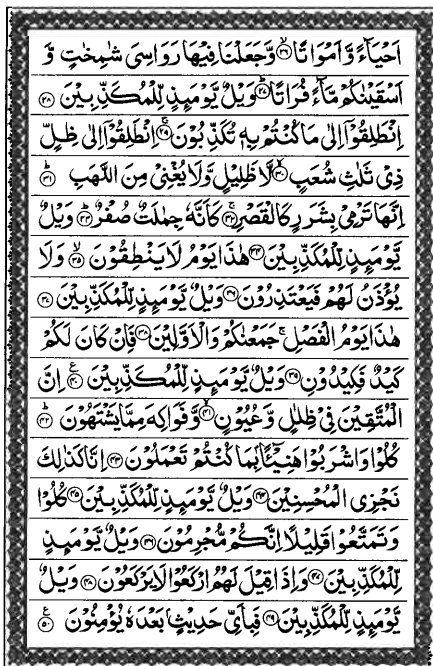 اَحْيَآءً وَّاَمْوَاتًا ۙ﴿۲۶﴾ وَّجَعَلْنَا فِيْهَا رَوَاسِیَ شٰمِخٰتٍ وَّ
اَسْقَيْنٰكُمْ مَّآءً فُرَاتًا ؕ﴿۲۷﴾ وَيْلٌ يَّوْمَىِٕذٍ لِّلْمُكَذِّبِيْنَ ﴿۲۸﴾
اِنْطَلِقُوْۤا اِلٰى مَا كُنْتُمْ بِهٖ تُكَذِّبُوْنَ ۚ﴿۲۹﴾ اِنْطَلِقُوْۤا اِلٰى ظِلٍّ
ذِیْ ثَلٰثِ شُعَبٍ ۙ﴿۳۰﴾ لَّا ظَلِيْلٍ وَّلَا يُغْنِیْ مِنَ اللَّهَبِ ؕ﴿۳۱﴾
اِنَّهَا تَرْمِیْ بِشَرَرٍ كَالْقَصْرِ ۚ﴿۳۲﴾ كَاَنَّهٗ جِمٰلَتٌ صُفْرٌ ؕ﴿۳۳﴾ وَيْلٌ
يَّوْمَىِٕذٍ لِّلْمُكَذِّبِيْنَ ﴿۳۴﴾ هٰذَا يَوْمُ لَا يَنْطِقُوْنَ ۙ﴿۳۵﴾ وَلَا
يُؤْذَنُ لَهُمْ فَيَعْتَذِرُوْنَ ﴿۳۶﴾ وَيْلٌ يَّوْمَىِٕذٍ لِّلْمُكَذِّبِيْنَ ﴿۳۷﴾
هٰذَا يَوْمُ الْفَصْلِ ۚ جَمَعْنٰكُمْ وَالْاَوَّلِيْنَ ﴿۳۸﴾ فَاِنْ كَانَ لَكُمْ
كَيْدٌ فَكِيْدُوْنِ ﴿۳۹﴾ وَيْلٌ يَّوْمَىِٕذٍ لِّلْمُكَذِّبِيْنَ ﴿۴۰﴾ ع اِنَّ
الْمُتَّقِيْنَ فِیْ ظِلٰلٍ وَّعُيُوْنٍ ۙ﴿۴۱﴾ وَّفَوَاكِهَ مِمَّا يَشْتَهُوْنَ ؕ﴿۴۲﴾
كُلُوْا وَاشْرَبُوْا هَنِيْٓئًۢا بِمَا كُنْتُمْ تَعْمَلُوْنَ ﴿۴۳﴾ اِنَّا كَذٰلِكَ
نَجْزِی الْمُحْسِنِيْنَ ﴿۴۴﴾ وَيْلٌ يَّوْمَىِٕذٍ لِّلْمُكَذِّبِيْنَ ﴿۴۵﴾ كُلُوْا
وَتَمَتَّعُوْا قَلِيْلًا اِنَّكُمْ مُّجْرِمُوْنَ ﴿۴۶﴾ وَيْلٌ يَّوْمَىِٕذٍ
لِّلْمُكَذِّبِيْنَ ﴿۴۷﴾ وَاِذَا قِيْلَ لَهُمُ ارْكَعُوْا لَا يَرْكَعُوْنَ ﴿۴۸﴾ وَيْلٌ
يَّوْمَىِٕذٍ لِّلْمُكَذِّبِيْنَ ﴿۴۹﴾ فَبِاَیِّ حَدِيْثٍۭ بَعْدَهٗ يُؤْمِنُوْنَ ﴿۵۰﴾ ع